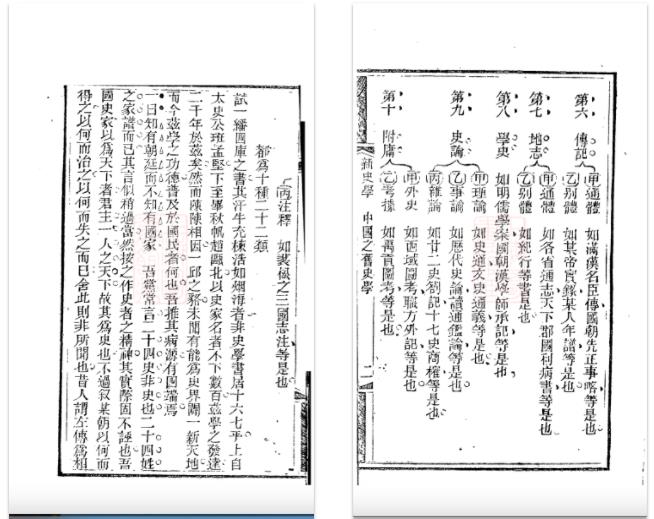 第六 傳記 甲通體 如滿漢名臣傳國朝先正事略等是也
乙別體 如某帝實錄某人年譜等是也
第七 地志 甲通體 如各省通志天下郡國利病書等是也
乙別體 如紀行等書是也
第八 學史 如明儒學案國朝漢學師承記等是也
第九 史論 甲理論 如史通文史通義等是也
乙事論 如歷代史論讀通鑑論等是也
丙雜論 如廿二史劄記十七史商榷等是也
第十 附庸 甲外史 如西域圖考職方外記等是也
乙考據 如禹貢圖考等是也
新史學 中國之舊史學 二
丙注釋 如裴松之三國志注等是也
都爲十種二十二類
試一繙四庫之書其汗牛充棟浩如烟海者非史學書居十六七乎上自
太史公班孟堅下至畢秋帆趙甌北以史家名者不下數百茲學之發達
二千年於茲矣然而陳陳相因一邱之貉未聞有能爲史界闢一新天地
而令茲學之功德普及於國民者何也吾推其病源有四端焉
一曰知有朝廷而不知有國家 吾黨常言二十四史非史也二十四姓
之家譜而已其言似稍過當然按之作史者之精神其實際固不誣也吾
國史家以爲天下者君主一人之天下故其爲史也不過叙某朝以何而
得之以何而治之以何而失之而已舍此則非所聞也昔人謂左傳爲相